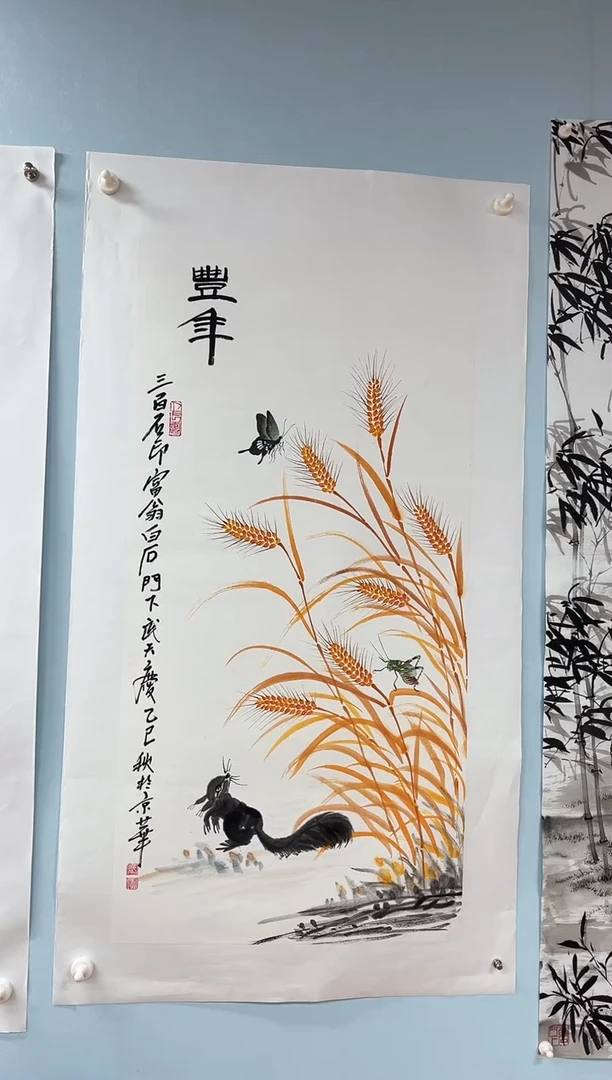 豐年
三百石印富翁白石門下武天慶乙巳秋於京華